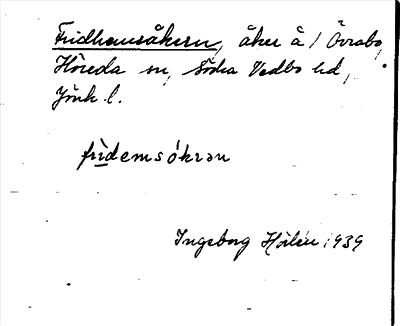 Fridhemsåkern, åker å / Övrabo,
Höreda sn, Södra Vedbo hd,
Jönk. l.
fridemsókrən
Ingeborg Hölén 1939